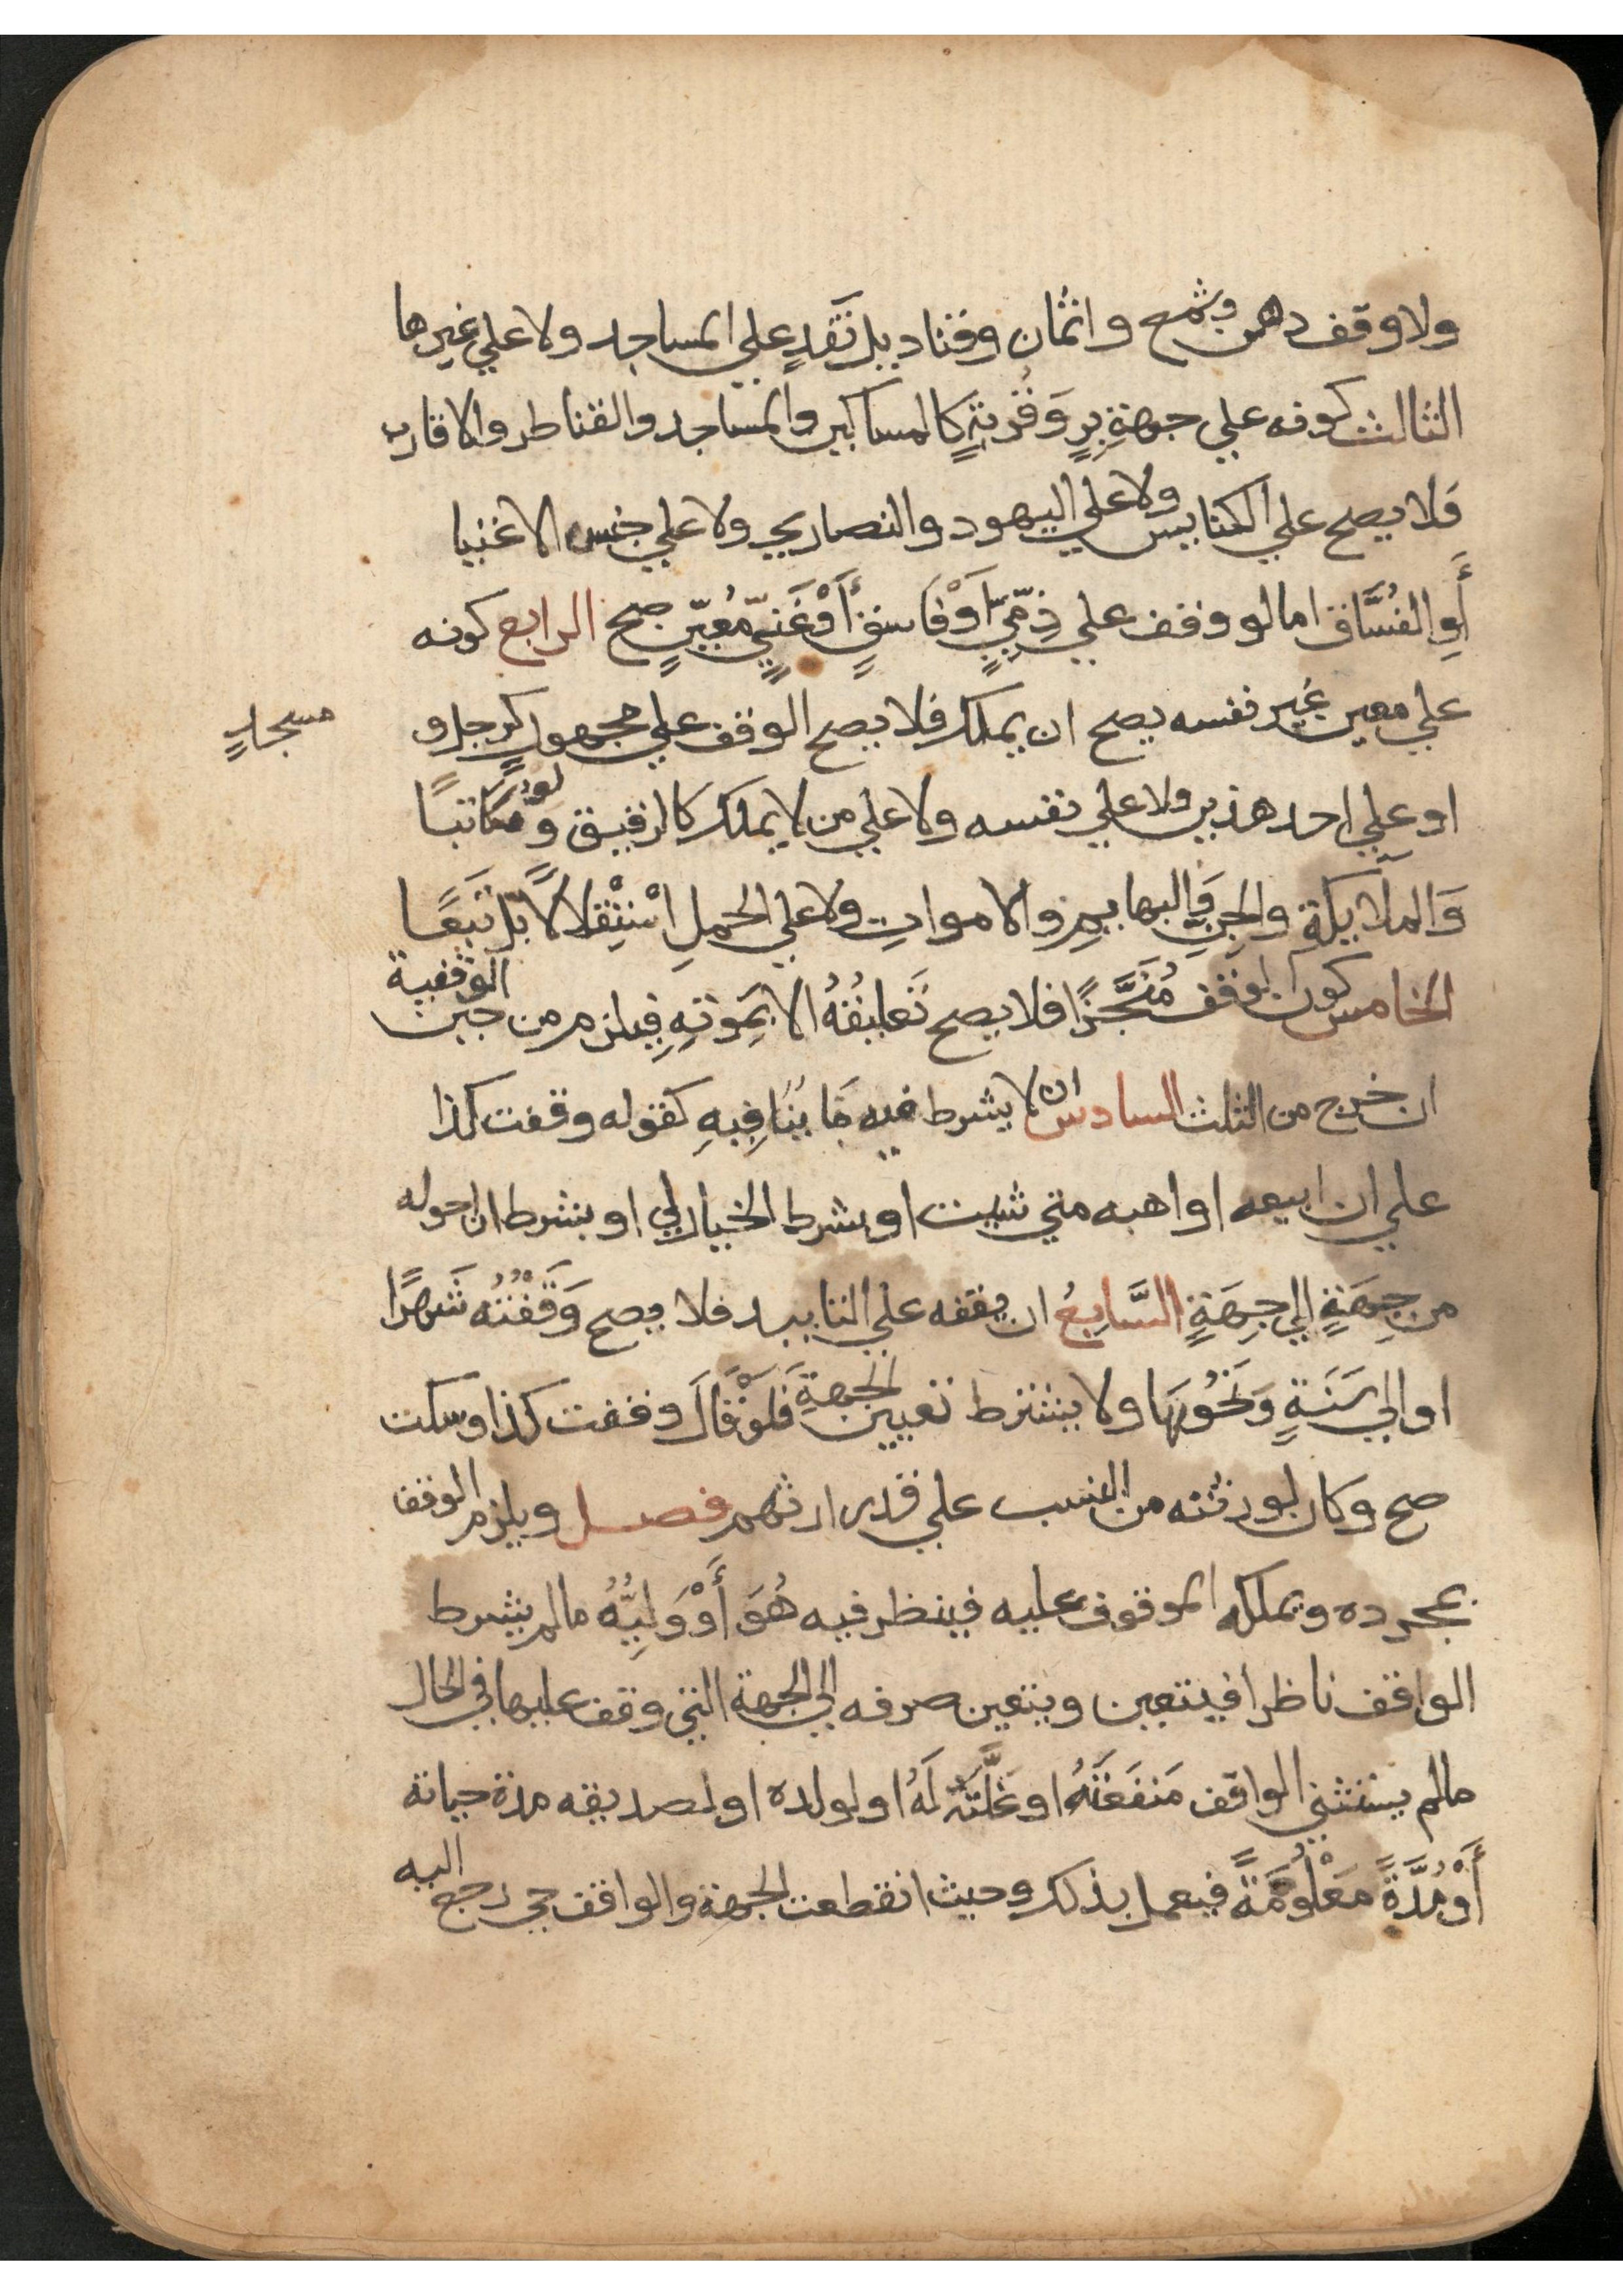 ولا وقف دهن وشمع واثمان وقناديل نَقْدٍ علي المساجد ولا علي غيرها
الثالث كونه علي جهةِ بِرٍ وَقُربَةٍ كالمساكين والمساجد والقناطر والاقارب
فَلا يصح علي الكنايس ولا علي اليهود والنصاري ولا علي جنس الاغنيا
أَوِ الفُسَّاق اما لو وقف علي ذِمّيٍّ أَوْ فَاسقٍ أَوْ غَنيٍّ مُعيّنٍ صح الرابع كونه
علي معين غير نفسه يصح ان يملك فلا يصح الوقف علي مجهول كرجل و
مسجدٍ
او علي احد هذين ولا علي نفسه ولا علي من لا يملك كالرقيق وَلَوْ مُكَاتبًا
وَالملايكةِ والجِنِ وَالبهايمِ والامواتِ ولا علي الحملِ اسْتِقْلالاً بل تَبَعًا
الخامس كون الوقف مُنَجَّزًا فلا يصح تَعليقُهُ الا بِمَوتِهِ فيلزم من حين الوقفية
ان خرج من الثلث السادس ان لا يشرط فيه مَا يُنَافِيهِ كقوله وقفت كذا
علي ان ابيعه او اهبه متي شيت او بشرط الخيار لي او بشرط ان احوله
من جِهَةٍ الي جِهَةٍ السَّابِعُ ان يقفه علي التابيد فلا يصح وَقَفْتُهُ شَهرًا
او الي سَنَةٍ وَنَحْوُهَا ولا يشترط تعيين الجهةِ فَلَوْ قَالَ وقفت كذا وسكت
صح وكان لورثته من النسب علي قدر ارثهم فصل ويلزم الوقف
بمجرده ويملكه الموقوف عليه فينظر فيه هُوَ أَوْ وَلِيُّهُ مالم يشرط
الواقف ناظرا فيتعين ويتعين صرفه الي الجهة التي وقف عليها في الحال
مالم يستثني الواقف مَنفَعَتَهُ او غَلَّتَهُ لَهُ او لولده او لصديقه مدة حياته
أَوْ مُدَّةً مَعْلُومَةً فيعمل بذلك وحيث انقطعت الجهة والواقف حي رجع اليه